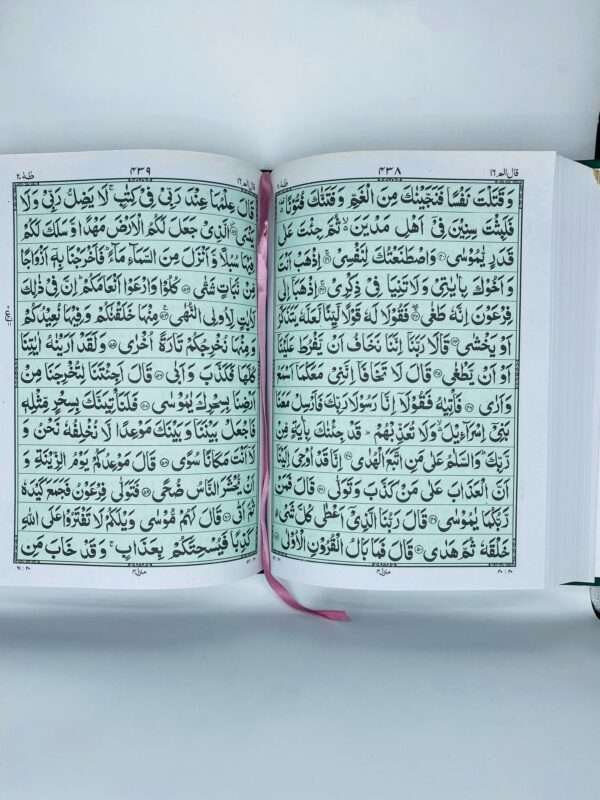 قال الم ١٦
٤٣٨
طٰهٰ ٢٠
وَ قَتَلْتَ نَفْسًا فَنَجَّيْنٰكَ مِنَ الْغَمِّ وَ فَتَنّٰكَ فُتُوْنًا
فَلَبِثْتَ سِنِيْنَ فِيْۤ اَهْلِ مَدْيَنَ ثُمَّ جِئْتَ عَلٰى
قَدَرٍ يّٰمُوْسٰى ﴿٤٠﴾ وَ اصْطَنَعْتُكَ لِنَفْسِيْ ﴿٤١﴾ اِذْهَبْ اَنْتَ
وَ اَخُوْكَ بِاٰيٰتِيْ وَ لَا تَنِيَا فِيْ ذِكْرِيْ ﴿٤٢﴾ اِذْهَبَاۤ اِلٰى
فِرْعَوْنَ اِنَّهٗ طَغٰى ﴿٤٣﴾ فَقُوْلَا لَهٗ قَوْلًا لَّيِّنًا لَّعَلَّهٗ يَتَذَكَّرُ
اَوْ يَخْشٰى ﴿٤٤﴾ قَالَا رَبَّنَاۤ اِنَّنَا نَخَافُ اَنْ يَّفْرُطَ عَلَيْنَاۤ
اَوْ اَنْ يَّطْغٰى ﴿٤٥﴾ قَالَ لَا تَخَافَاۤ اِنَّنِيْ مَعَكُمَاۤ اَسْمَعُ
وَ اَرٰى ﴿٤٦﴾ فَاْتِيٰهُ فَقُوْلَاۤ اِنَّا رَسُوْلَا رَبِّكَ فَاَرْسِلْ مَعَنَا
بَنِيْۤ اِسْرَآءِيْلَ وَ لَا تُعَذِّبْهُمْ قَدْ جِئْنٰكَ بِاٰيَةٍ مِّنْ
رَّبِّكَ وَ السَّلٰمُ عَلٰى مَنِ اتَّبَعَ الْهُدٰى ﴿٤٧﴾ اِنَّا قَدْ اُوْحِيَ اِلَيْنَاۤ
اَنَّ الْعَذَابَ عَلٰى مَنْ كَذَّبَ وَ تَوَلّٰى ﴿٤٨﴾ قَالَ فَمَنْ
رَّبُّكُمَا يٰمُوْسٰى ﴿٤٩﴾ قَالَ رَبُّنَا الَّذِيْۤ اَعْطٰى كُلَّ شَيْءٍ
خَلْقَهٗ ثُمَّ هَدٰى ﴿٥٠﴾ قَالَ فَمَا بَالُ الْقُرُوْنِ الْاُوْلٰى ﴿٥١﴾
منزل ٤
قال الم ١٦
٤٣٩
طٰهٰ ٢٠
قَالَ عِلْمُهَا عِنْدَ رَبِّيْ فِيْ كِتٰبٍ لَا يَضِلُّ رَبِّيْ وَ لَا
يَنْسَى ﴿٥٢﴾ الَّذِيْ جَعَلَ لَكُمُ الْاَرْضَ مَهْدًا وَّ سَلَكَ لَكُمْ
فِيْهَا سُبُلًا وَّ اَنْزَلَ مِنَ السَّمَآءِ مَآءً فَاَخْرَجْنَا بِهٖۤ اَزْوَاجًا
مِّنْ نَّبَاتٍ شَتّٰى ﴿٥٣﴾ كُلُوْا وَ ارْعَوْا اَنْعَامَكُمْ اِنَّ فِيْ ذٰلِكَ
لَاٰيٰتٍ لِّاُولِي النُّهٰى ﴿٥٤﴾ مِنْهَا خَلَقْنٰكُمْ وَ فِيْهَا نُعِيْدُكُمْ
وَ مِنْهَا نُخْرِجُكُمْ تَارَةً اُخْرٰى ﴿٥٥﴾ وَ لَقَدْ اَرَيْنٰهُ اٰيٰتِنَا
كُلَّهَا فَكَذَّبَ وَ اَبٰى ﴿٥٦﴾ قَالَ اَجِئْتَنَا لِتُخْرِجَنَا مِنْ
اَرْضِنَا بِسِحْرِكَ يٰمُوْسٰى ﴿٥٧﴾ فَلَنَاْتِيَنَّكَ بِسِحْرٍ مِّثْلِهٖ
فَاجْعَلْ بَيْنَنَا وَ بَيْنَكَ مَوْعِدًا لَّا نُخْلِفُهٗ نَحْنُ وَ
لَاۤ اَنْتَ مَكَانًا سُوًى ﴿٥٨﴾ قَالَ مَوْعِدُكُمْ يَوْمُ الزِّيْنَةِ وَ
اَنْ يُّحْشَرَ النَّاسُ ضُحًى ﴿٥٩﴾ فَتَوَلّٰى فِرْعَوْنُ فَجَمَعَ كَيْدَهٗ
ثُمَّ اَتٰى ﴿٦٠﴾ قَالَ لَهُمْ مُّوْسٰى وَيْلَكُمْ لَا تَفْتَرُوْا عَلَى اللّٰهِ
كَذِبًا فَيُسْحِتَكُمْ بِعَذَابٍ وَ قَدْ خَابَ مَنِ
منزل ٤